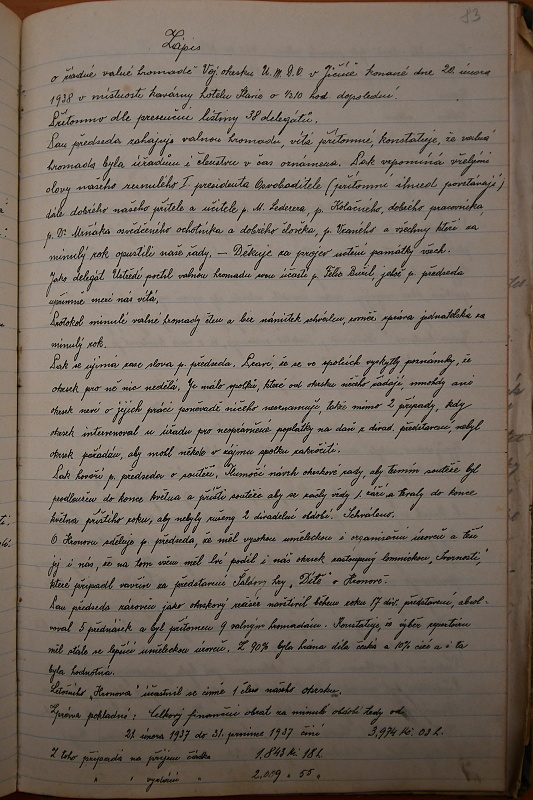 83
Zápis
o řádné valné hromadě Voj. okrsku Ú.M.D.O. v Jičíně konané dne 20. února
1938 v místnosti kavárny hotelu Start o ½10 hod. dopolední.
Přítomno dle presenční listiny 38 delegátů.
Pan předseda zahajuje valnou hromadu, vítá přítomné, konstatuje, že valná
hromada byla úřadům i členstvu v čas oznámena. Pak vzpomíná vřelými
slovy našeho zesnulého I. presidenta Osvoboditele (přítomní ihned povstávají)
dále dobrého našeho přítele a učitele p. M. Lederera, p. Koláčného, dobrého pracovníka,
p. Dr Mrňáka osvědčeného ochotníka a dobrého člověka, p. Vraného a všechny kteří za
minulý rok opustili naše řady. — Děkuje za projev uctění památky všech.
Jako delegát Ústředí poctil valnou hromadu svou účastí p. Féba Buřil, jehož p. předseda
upřímně mezi námi vítá.
Protokol minulé valné hromady čten a bez námitek schválen, rovněž zpráva jednatelská za
minulý rok.
Pak se ujímá zase slova p. předseda. Praví, že se ve spolcích vyskytly poznámky, že
okrsek pro ně nic nedělá. Je málo spolků, které od okrsku něčeho žádají, mnohdy ani
okrsek neví o jejich práci poněvadž ničeho neoznamují, takže mimo 2 případy, kdy
okrsek intervenoval u úřadu pro neoprávněné poplatky na daň z divad. představení, nebyl
okrsek požádán, aby mohl někde v zájmu spolku zakročiti.
Pak hovoří p. předseda o soutěži. Tlumočí návrh okrskové rady, aby termín soutěže byl
prodloužen do konce května a příště soutěže aby se začly vždy 1. září a trvaly do konce
května příštího roku, aby nebyly rušeny 2 divadelní období. Schváleno.
O Hronovu sděluje p. předseda, že měl vysokou uměleckou i organisační úroveň a těší
jej i nás, že na tom všem měl lví podíl i náš okrsek zastoupený lomnickou „Tvorností",
které připadl vavřín za představení Šaldovy hry „Dítě" v Hronově.
Pan předseda zároveň jako okrskový režisér navštívil během roku 17 div. představení, absol-
voval 5 přednášek a byl přítomen 9 valným hromadám. Konstatuje, že výběr repertoiru
měl stále se lepšící uměleckou úroveň. Z 90% byla hrána díla česká a 10% cizí a i ta
byla hodnotná.
Letošního „Hronova" účastnil se činně 1 člen našeho okrsku.
Zpráva pokladní: Celkový finanční obrat za minulé období tedy od
21. února 1937 do 31. prosince 1937 činí 3.974 Kč 03 h.
Z toho připadá na příjem částka 1.843 Kč 18 h.
" " vydání " 2.009 " 55 "